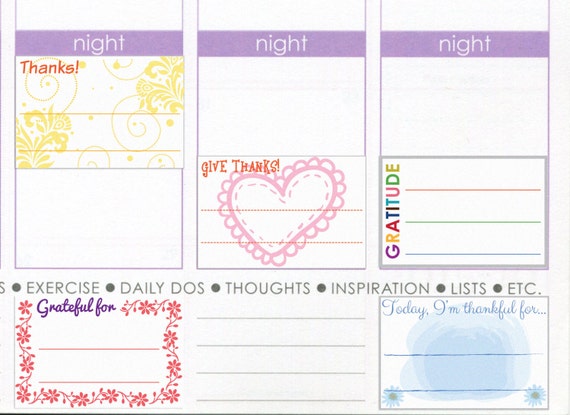 night night night
Thanks!
GIVE THANKS!
GRATITUDE
S ● EXERCISE ● DAILY DOS ● THOUGHTS ● INSPIRATION ● LISTS ● ETC.
Grateful for
Today, I'm thankful for...